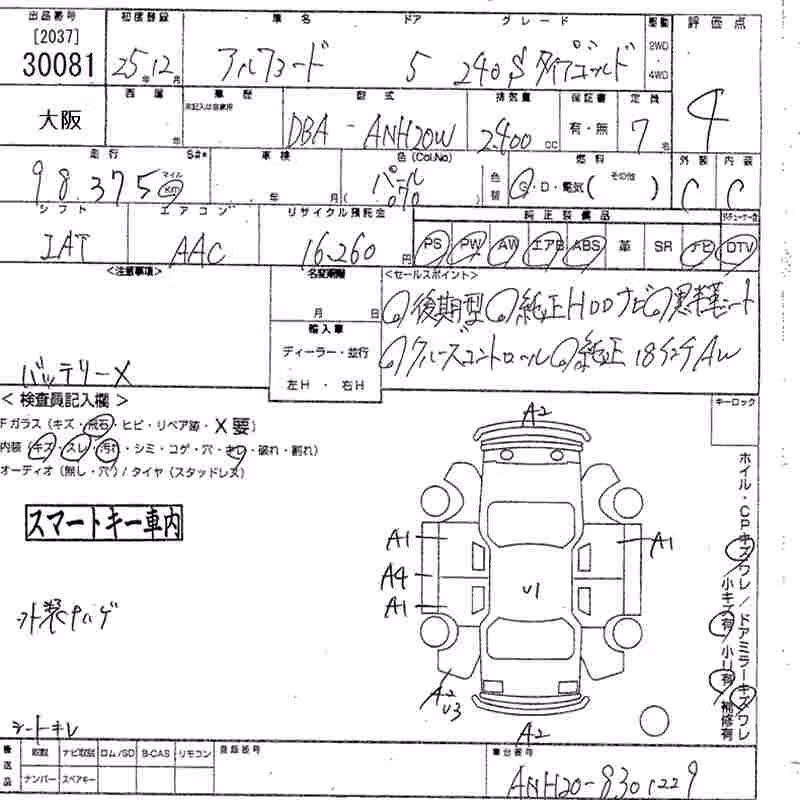 出品番号 初度登録 車名 ドア グレード 駆動 評価点
[2037] 2WD
30081 25年12月 アルファード 5 240S タイプゴールド 4WD 4
大阪 西暦 年 車歴 未記入は自家用 型式 排気量 保証書 定員
DBA-ANH20W 2,400cc 有・無 7名
走行 S#* 車検 色(Col.No) 燃料 外装 内装
98,375 マイル Km 年 月 パール 070 色替 G・D・電気( その他 ) C C
シフト エアコン リサイクル預託金 純正装備品
IAT AAC 16,260円 PS PW AW エアB ABS 革 SR ナビ DTV
<注意事項> 名変期限 <セールスポイント>
月 日 後期型 純正HDDナビ 黒革シート
輸入車
ディーラー・並行 クルーズコントロール 純正18インチAW
バッテリーX 左H・右H
<検査員記入欄> キーロック
Fガラス(キズ・飛石・ヒビ・リペア跡・X要) A2
内装(キズ・スレ・汚れ・シミ・コゲ・穴・キレ・破れ・割れ)
オーディオ(無し・穴)/タイヤ(スタッドレス)
ホイル・CPキズワレ/ドアミラーキズワレ
小キズ有/小U有 補修有
スマートキー車内
A1 A1
A4
U1
A1
外装ナハゲ
A2
U3
シートキレ
A2
後送品 取説 ナビ取説 ロム/SD B-CAS リモコン 登録番号 車台番号
ナンバー スペアキー ANH20-8301229